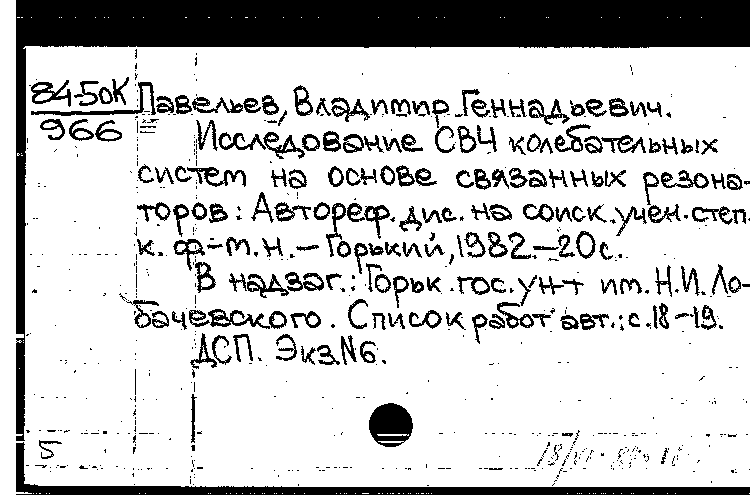 84-5ОК
966
Павельев, Владимир Геннадьевич.
Исследование СВЧ колебательных
систем на основе связанных резона-
торов: Автореф. дис. на соиск. учен. степ.
к. ф-т. н. – Горький, 1982. – 20 с.
В надзаг.: Горьк. гос. ун-т им. Н.И. Ло-
бачевского. Список работ авт.: с. 18–19.
ДСП. Экз. N6.
5